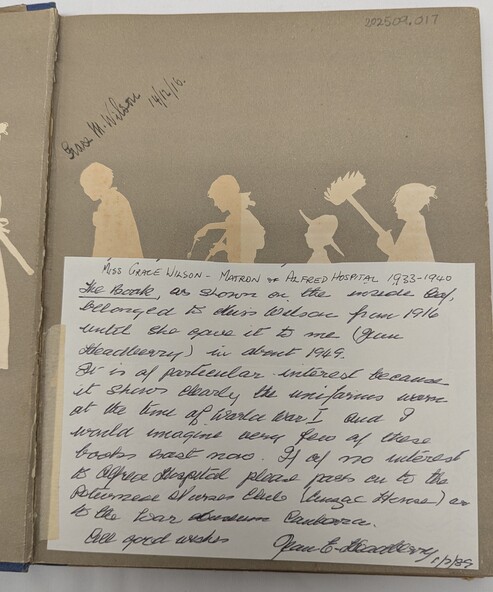 202509.017
Grace M. Wilson 14/12/16.
MISS GRACE WILSON - MATRON OF ALFRED HOSPITAL 1933-1940
The Book, as shown on the inside leaf,
belonged to Miss Wilson from 1916
until she gave it to me (Jean
Headberry) in about 1949.
It is of particular interest because
it shows clearly the uniforms worn
at the time of World War I and I
would imagine very few of these
books exist now. If of no interest
to Alfred Hospital please pass on to the
Returned Nurses Club (Anzac House) or
to the War Museum Canberra.
All good wishes
Jean E. Headberry